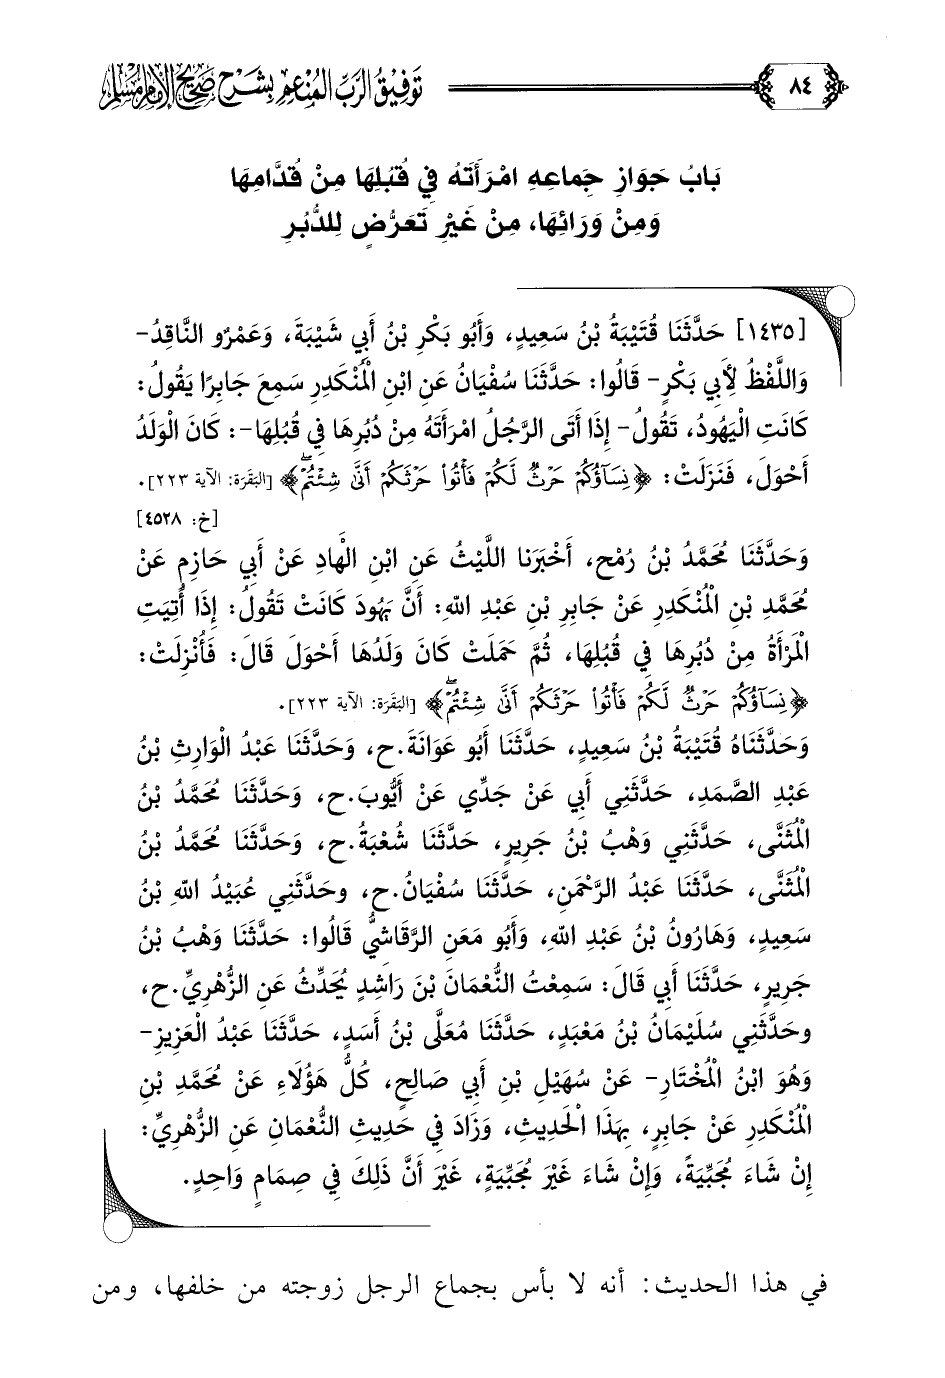 ٨٤
توفيق الرب المنعم بشرح صحيح الإمام مسلم
بَابُ جَوَازِ جِمَاعِهِ امْرَأَتَهُ فِي قُبُلِهَا مِنْ قُدَّامِهَا
وَمِنْ وَرَائِهَا، مِنْ غَيْرِ تَعَرُّضٍ لِلدُّبُرِ
[١٤٣٥] حَدَّثَنَا قُتَيْبَةُ بْنُ سَعِيدٍ، وَأَبُو بَكْرِ بْنُ أَبِي شَيْبَةَ، وَعَمْرٌو النَّاقِدُ-
وَاللَّفْظُ لِأَبِي بَكْرٍ- قَالُوا: حَدَّثَنَا سُفْيَانُ عَنِ ابْنِ الْمُنْكَدِرِ سَمِعَ جَابِرًا يَقُولُ:
كَانَتِ الْيَهُودُ، تَقُولُ- إِذَا أَتَى الرَّجُلُ امْرَأَتَهُ مِنْ دُبُرِهَا فِي قُبُلِهَا-: كَانَ الْوَلَدُ
أَحْوَلَ، فَنَزَلَتْ: ﴿نِسَآؤُكُمۡ حَرۡثٞ لَّكُمۡ فَأۡتُواْ حَرۡثَكُمۡ أَنَّىٰ شِئۡتُمۡۖ﴾ [البَقَرَة: الآية ٢٢٣].
[خ: ٤٥٢٨]
وَحَدَّثَنَا مُحَمَّدُ بْنُ رُمْحٍ، أَخْبَرَنا اللَّيْثُ عَنِ ابْنِ الْهَادِ عَنْ أَبِي حَازِمٍ عَنْ
مُحَمَّدِ بْنِ الْمُنْكَدِرِ عَنْ جَابِرِ بْنِ عَبْدِ اللهِ: أَنَّ يَهُودَ كَانَتْ تَقُولُ: إِذَا أُتِيَتِ
الْمَرْأَةُ مِنْ دُبُرِهَا فِي قُبُلِهَا، ثُمَّ حَمَلَتْ كَانَ وَلَدُهَا أَحْوَلَ قَالَ: فَأُنْزِلَتْ:
﴿نِسَآؤُكُمۡ حَرۡثٞ لَّكُمۡ فَأۡتُواْ حَرۡثَكُمۡ أَنَّىٰ شِئۡتُمۡۖ﴾ [البَقَرَة: الآية ٢٢٣].
وَحَدَّثَنَاهُ قُتَيْبَةُ بْنُ سَعِيدٍ، حَدَّثَنَا أَبُو عَوَانَةَ.ح، وَحَدَّثَنَا عَبْدُ الْوَارِثِ بْنُ
عَبْدِ الصَّمَدِ، حَدَّثَنِي أَبِي عَنْ جَدِّي عَنْ أَيُّوبَ.ح، وَحَدَّثَنَا مُحَمَّدُ بْنُ
الْمُثَنَّى، حَدَّثَنِي وَهْبُ بْنُ جَرِيرٍ، حَدَّثَنَا شُعْبَةُ.ح، وَحَدَّثَنَا مُحَمَّدُ بْنُ
الْمُثَنَّى، حَدَّثَنَا عَبْدُ الرَّحْمَنِ، حَدَّثَنَا سُفْيَانُ.ح، وحَدَّثَنِي عُبَيْدُ اللهِ بْنُ
سَعِيدٍ، وَهَارُونُ بْنُ عَبْدِ اللهِ، وَأَبُو مَعَنِ الرَّقَاشيُّ قَالُوا: حَدَّثَنَا وَهْبُ بْنُ
جَرِيرٍ، حَدَّثَنَا أَبِي قَالَ: سَمِعْتُ النُّعْمَانَ بْنَ رَاشِدٍ يُحَدِّثُ عَنِ الزُّهْرِيِّ.ح،
وحَدَّثَنِي سُلَيْمَانُ بْنُ مَعْبَدٍ، حَدَّثَنَا مُعَلَّى بْنُ أَسَدٍ، حَدَّثَنَا عَبْدُ الْعَزِيزِ-
وَهُوَ ابْنُ الْمُخْتَارِ- عَنْ سُهَيْلِ بْنِ أَبِي صَالِحٍ، كُلُّ هَؤُلَاءِ عَنْ مُحَمَّدِ بْنِ
الْمُنْكَدِرِ عَنْ جَابِرٍ، بِهَذَا الْحَدِيثِ، وَزَادَ فِي حَدِيثِ النُّعْمَانِ عَنِ الزُّهْرِيِّ:
إِنْ شَاءَ مُجَبِّيَةً، وَإِنْ شَاءَ غَيْرَ مُجَبِّيَةٍ، غَيْرَ أَنَّ ذَلِكَ فِي صِمَامٍ وَاحِدٍ.
في هذا الحديث: أنه لا بأس بجماع الرجل زوجته من خلفها، ومن